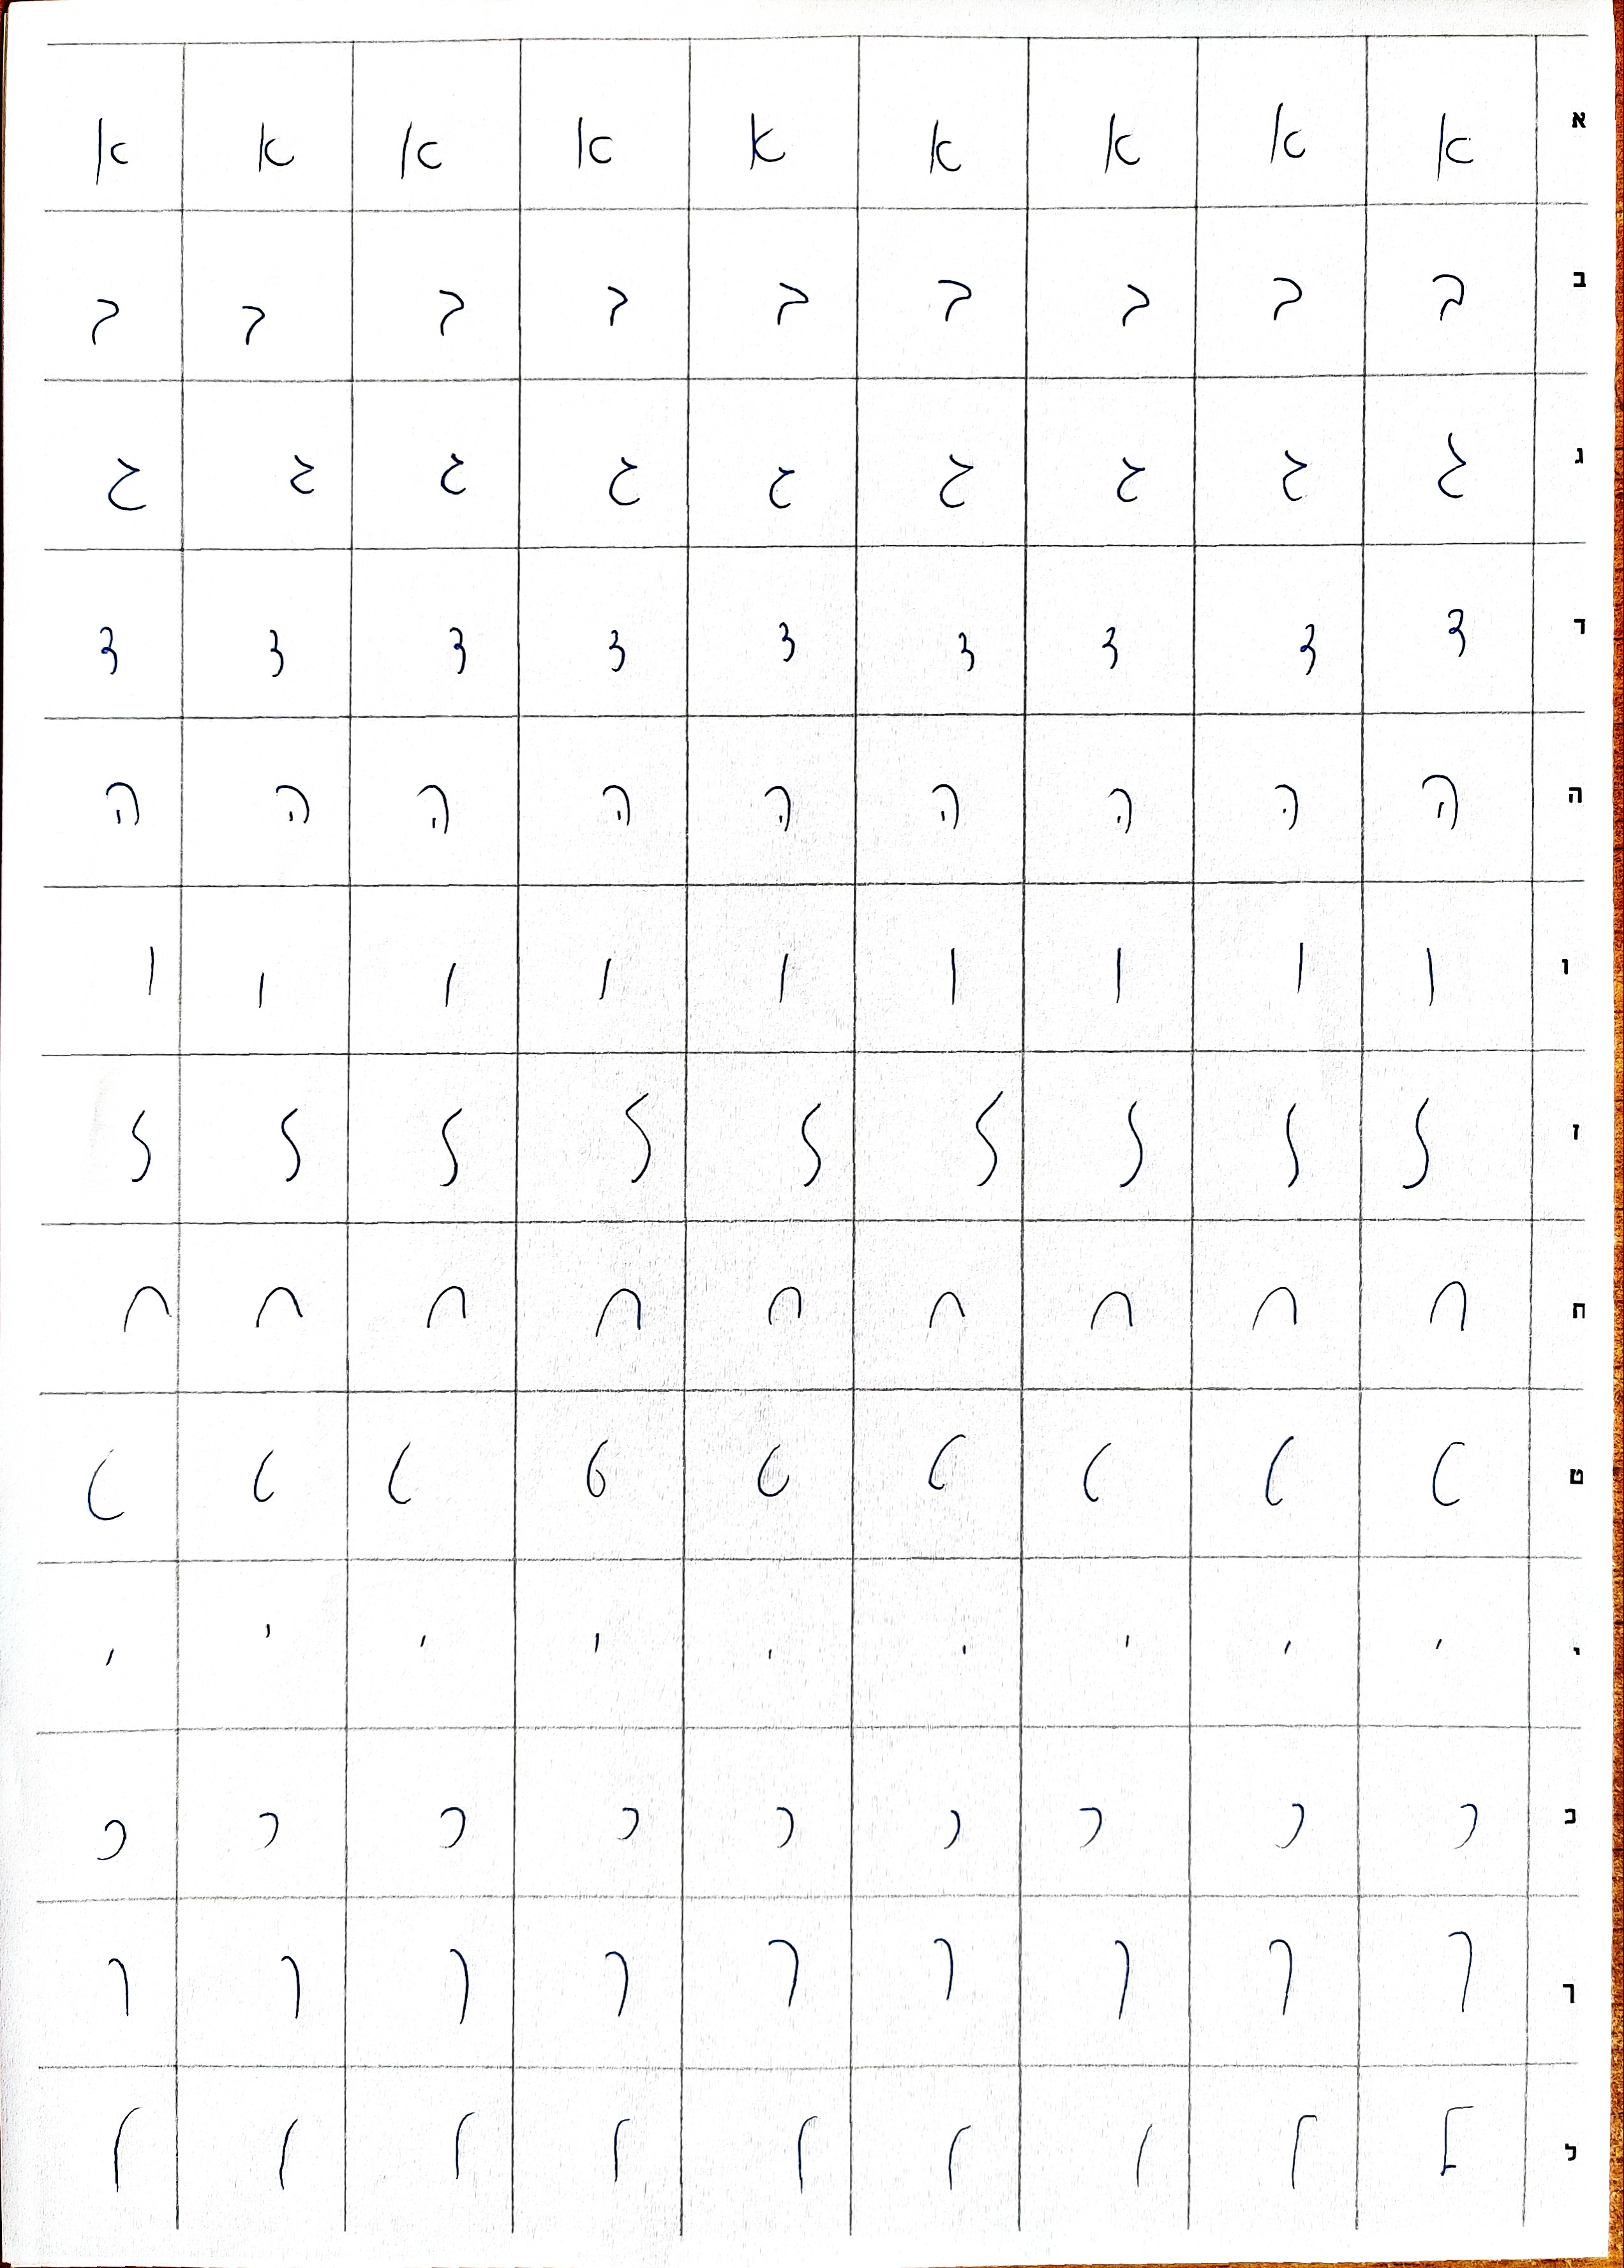 א א א א א א א א א א
ב ב ב ב ב ב ב ב ב ב
ג ג ג ג ג ג ג ג ג ג
ד ד ד ד ד ד ד ד ד ד
ה ה ה ה ה ה ה ה ה ה
ו ו ו ו ו ו ו ו ו ו
ז ז ז ז ז ז ז ז ז ז
ח ח ח ח ח ח ח ח ח ח
ט ט ט ט ט ט ט ט ט ט
י י י י י י י י י י
כ כ כ כ כ כ כ כ כ כ
ך ך ך ך ך ך ך ך ך ך
ל ל ל ל ל ל ל ל ל ל